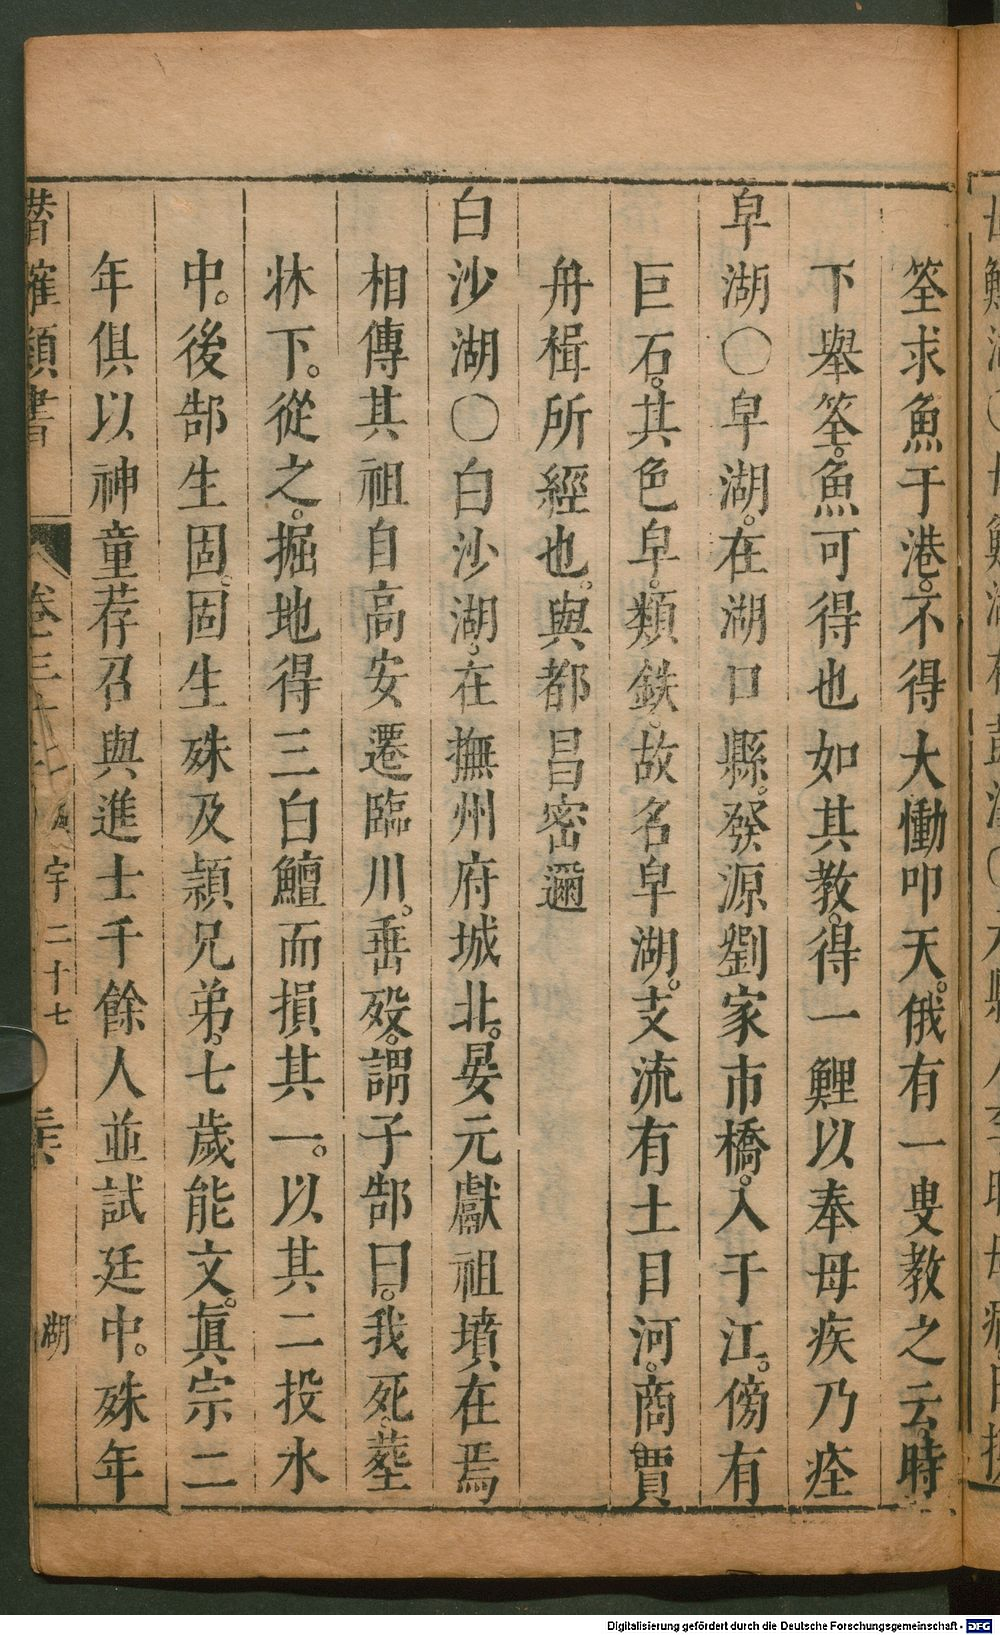 筌求魚于港。不得大慟叩天。俄有一叟教之云。時
下舉筌。魚可得也如其教。得一鯉以奉母疾乃痊
皁湖〇皁湖。在湖口縣。發源劉家市橋。入于江。傍有
巨石。其色皁。類鉄。故名皁湖。支流有土目河。商賈
舟楫所經也。與都昌密邇
白沙湖〇白沙湖。在撫州府城北。晏元獻祖墳在焉
相傳其祖自高安遷臨川。垂殁。謂子郜曰。我死。塟
牀下。從之。掘地得三白鱣而損其一。以其二投水
中。後郜生固。固生殊及頴兄弟。七歲能文。眞宗二
年俱以神童荐召與進士千餘人並試廷中。殊年
潛確類書 卷三十 宇二十七 湖
Digitalisierung gefördert durch die Deutsche Forschungsgemeinschaft - DFG